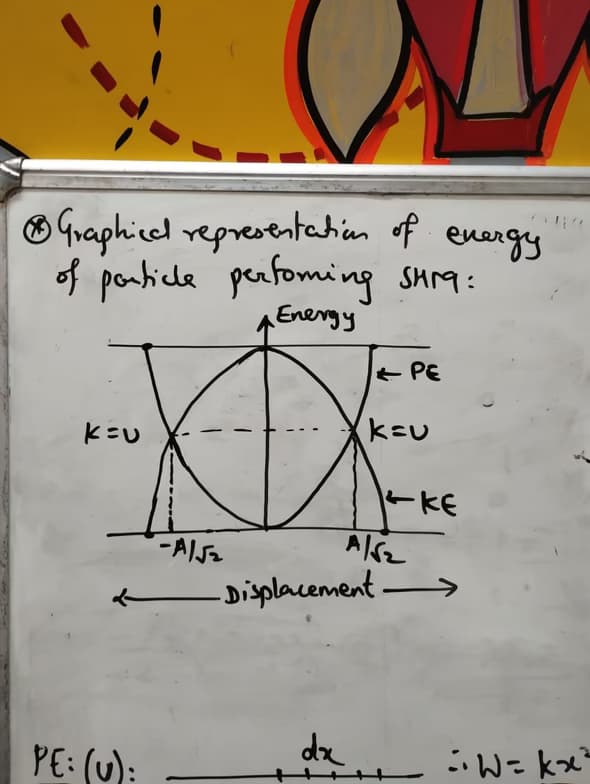 ⊛ Graphical representation of energy
of particle perfoming SHM:
Energy
← PE
K=U
K=U
← KE
-A/√2
A/√2
← Displacement →
PE: (U):
dx
∴ W = kx²